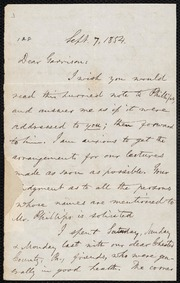 Sept. 7, 1854
Dear Garrison:
I wish you would
read this hurried note to Phillips,
and answer me as if it were
addressed to you; then forward
to him. I am anxious to get the
arrangements for our lectures
made as soon as possible. Your
judgment as to all the persons
whose names are mentioned to
Mr. Phillips is solicited
I spent Saturday, Sunday
& Monday last with our dear Chester
County, Pa., friends, who were gen-
erally in good health. The corn